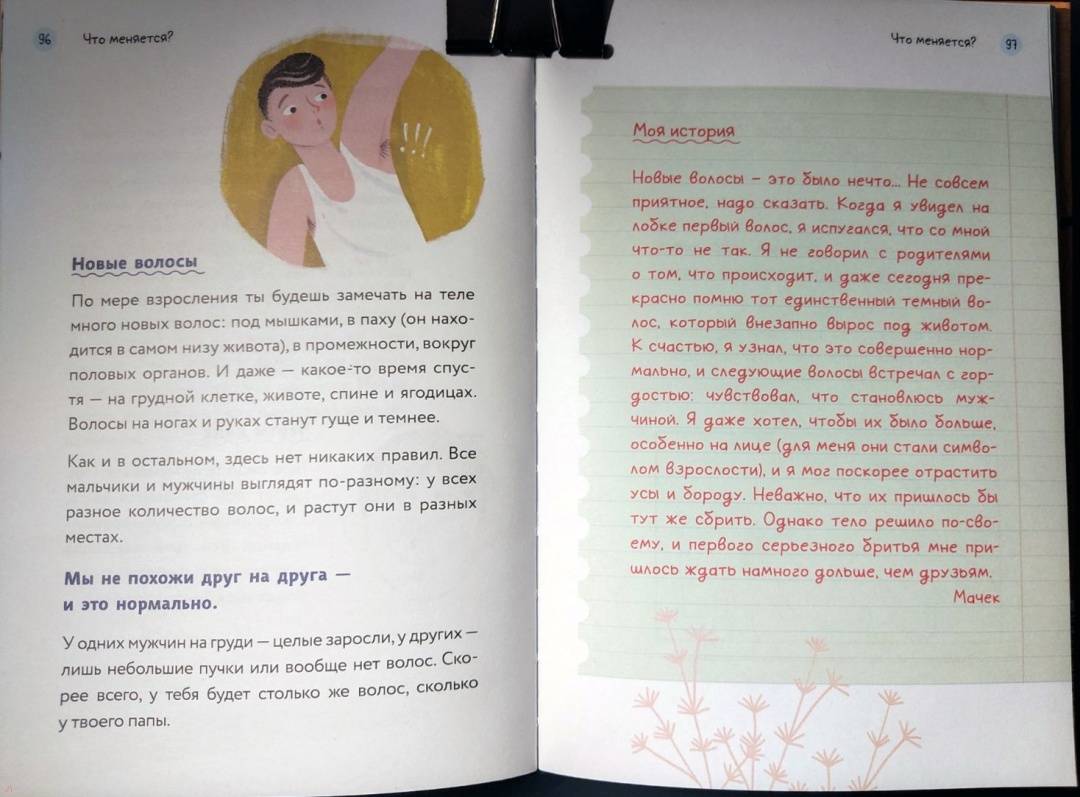 96
Что меняется?
!!!
Новые волосы
По мере взросления ты будешь замечать на теле
много новых волос: под мышками, в паху (он нахо-
дится в самом низу живота), в промежности, вокруг
половых органов. И даже — какое-то время спус-
тя — на грудной клетке, животе, спине и ягодицах.
Волосы на ногах и руках станут гуще и темнее.
Как и в остальном, здесь нет никаких правил. Все
мальчики и мужчины выглядят по-разному: у всех
разное количество волос, и растут они в разных
местах.
Мы не похожи друг на друга —
и это нормально.
У одних мужчин на груди — целые заросли, у других —
лишь небольшие пучки или вообще нет волос. Ско-
рее всего, у тебя будет столько же волос, сколько
у твоего папы.
Что меняется?
97
Моя история
Новые волосы – это было нечто... Не совсем
приятное, надо сказать. Когда я увидел на
лобке первый волос, я испугался, что со мной
что-то не так. Я не говорил с родителями
о том, что происходит, и даже сегодня пре-
красно помню тот единственный темный во-
лос, который внезапно вырос под животом.
К счастью, я узнал, что это совершенно нор-
мально, и следующие волосы встречал с гор-
достью: чувствовал, что становлюсь муж-
чиной. Я даже хотел, чтобы их было больше,
особенно на лице (для меня они стали симво-
лом взрослости), и я мог поскорее отрастить
усы и бороду. Неважно, что их пришлось бы
тут же сбрить. Однако тело решило по-сво-
ему, и первого серьезного бритья мне при-
шлось ждать намного дольше, чем друзьям.
Мачек